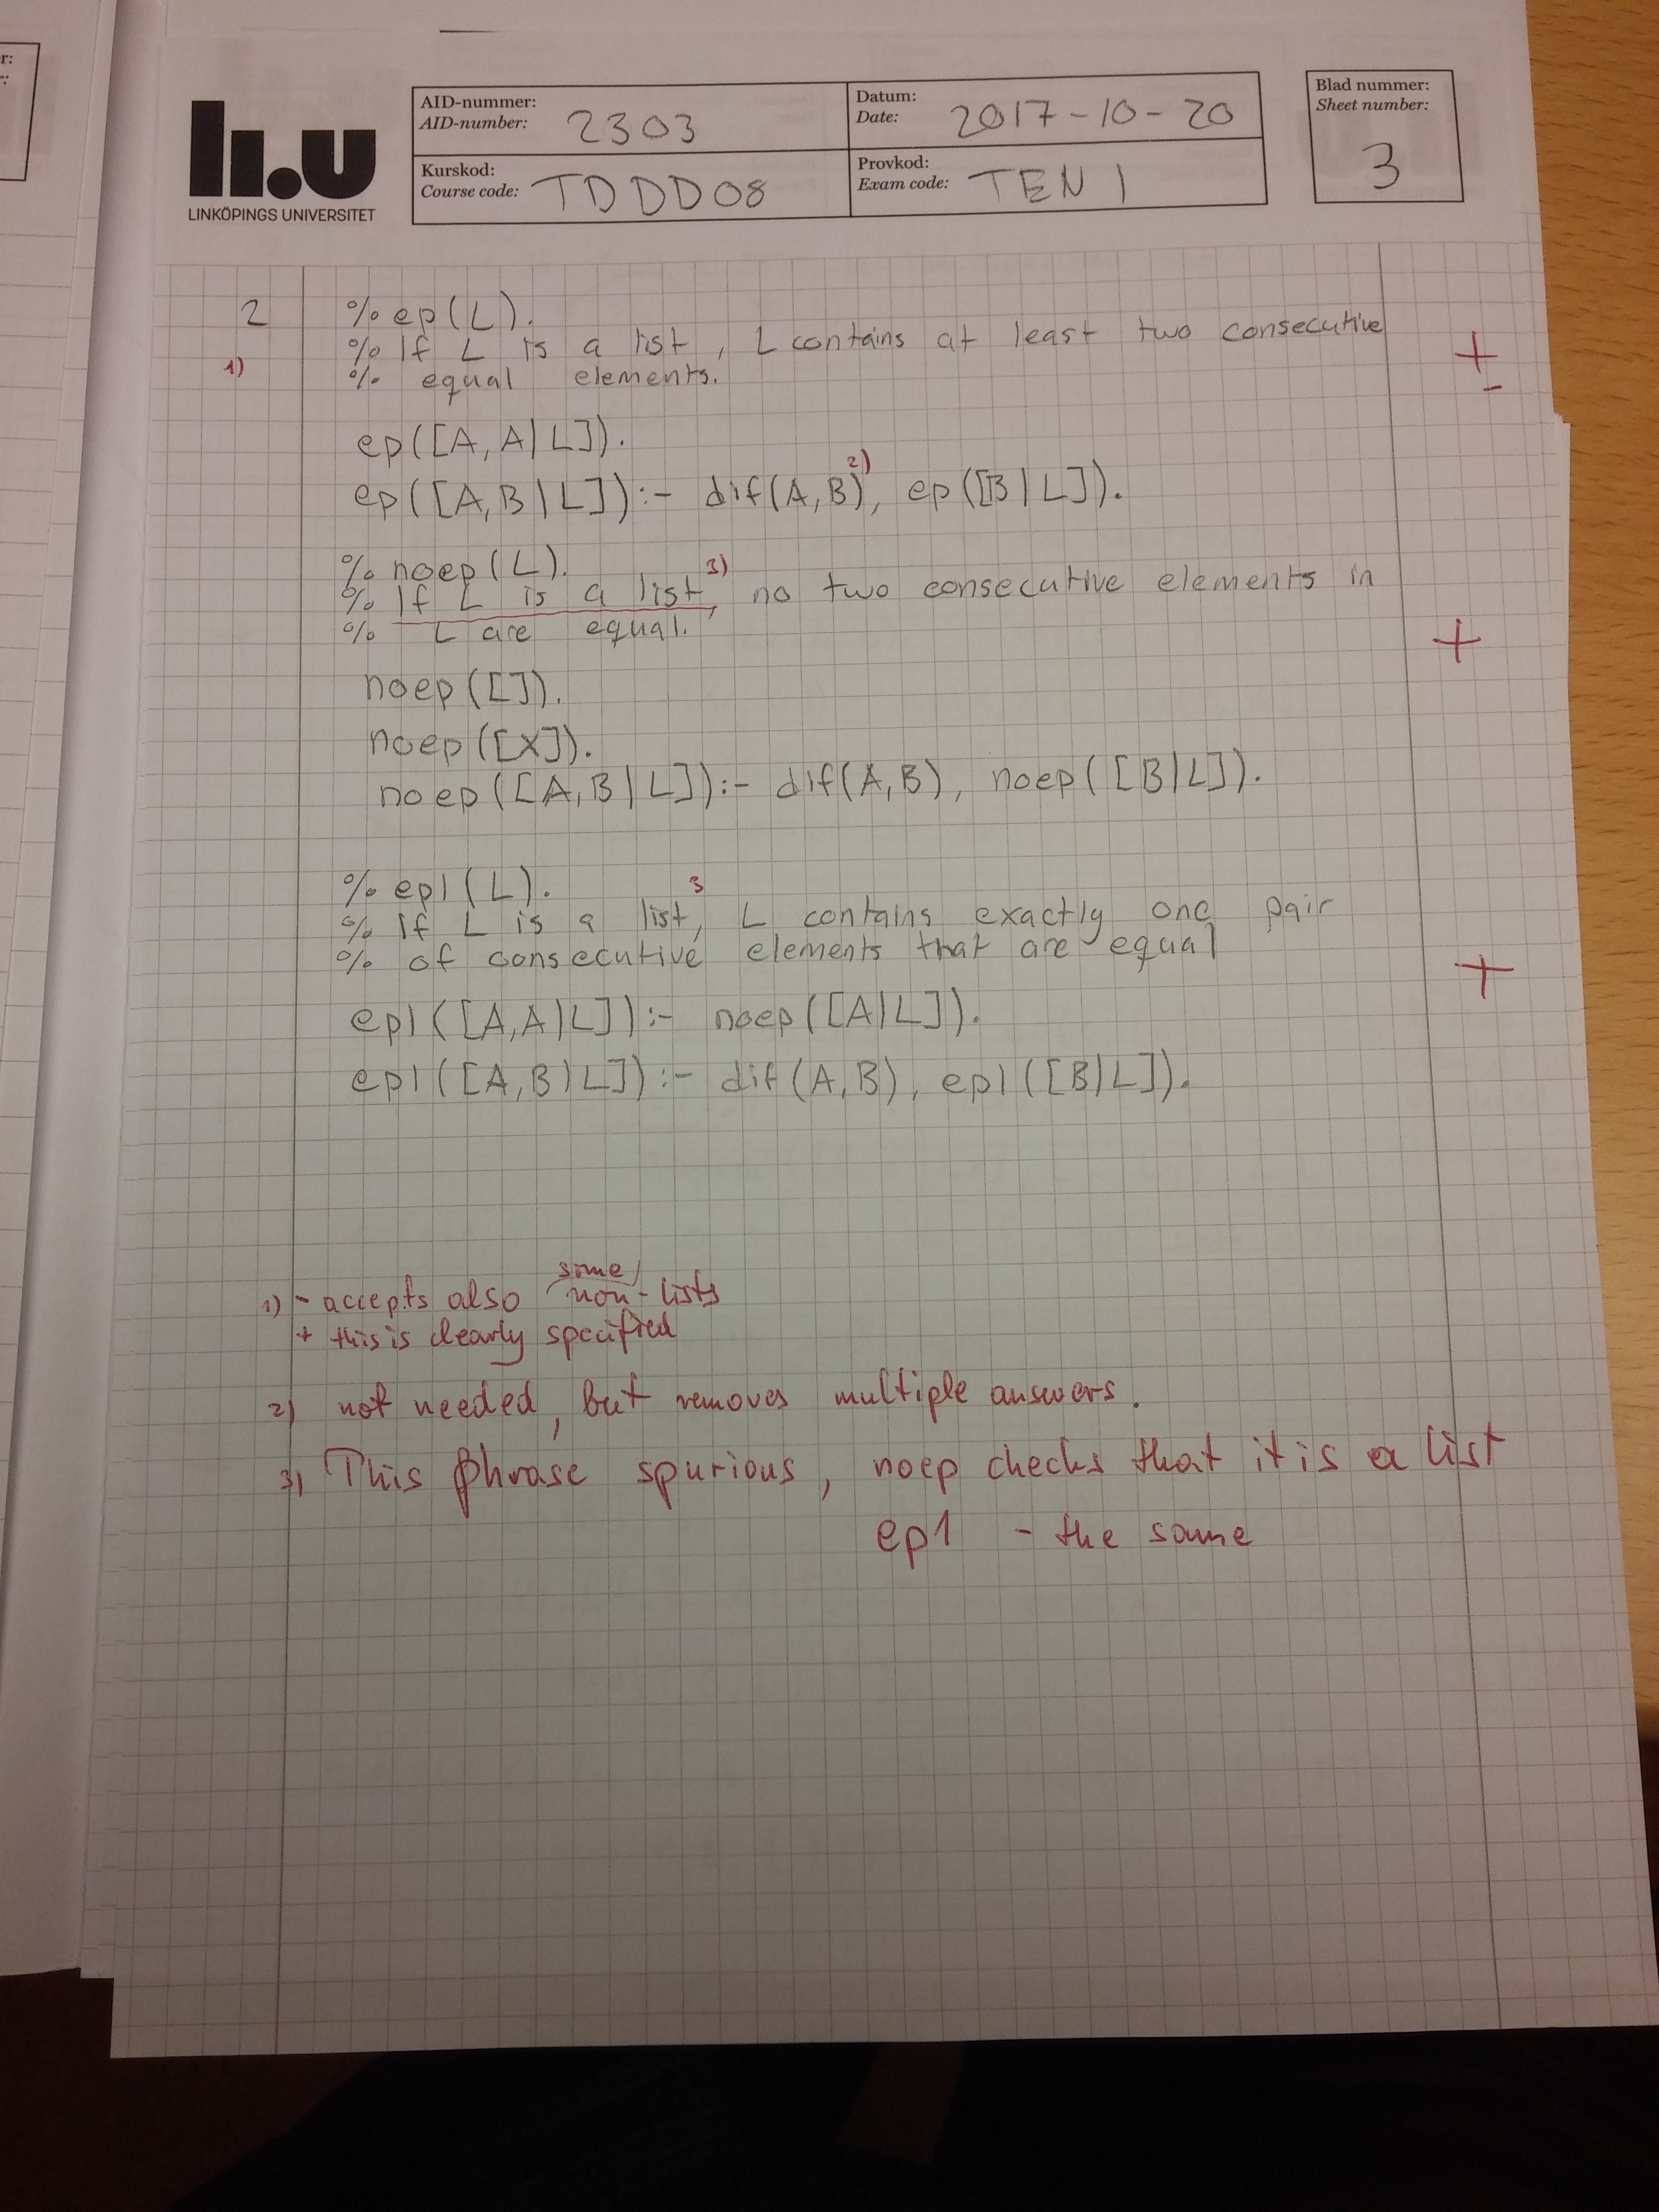 r:
:
li.u
LINKÖPINGS UNIVERSITET
AID-nummer:
AID-number: 2303
Datum:
Date: 2017-10-20
Kurskod:
Course code: TDDD08
Provkod:
Exam code: TEN 1
Blad nummer:
Sheet number:
3
2 % ep(L).
% If L is a list, L contains at least two consecutive
1) % equal elements.
+
-
ep([A,A|L]).
2)
ep([A,B|L]):- dif(A,B), ep([B|L]).
% noep(L).
3)
% If L is a list, no two consecutive elements in
% L are equal.
+
noep([]).
noep([X]).
noep([A,B|L]):- dif(A,B), noep([B|L]).
% ep1(L).
3
% If L is a list, L contains exactly one pair
% of consecutive elements that are equal
+
ep1([A,A|L]):- noep([A|L]).
ep1([A,B|L]):- dif(A,B), ep1([B|L]).
some
1) - accepts also non-lists
+ this is clearly specified
2) not needed, but removes multiple answers.
3) This phrase spurious, noep checks that it is a list
ep1 - the same